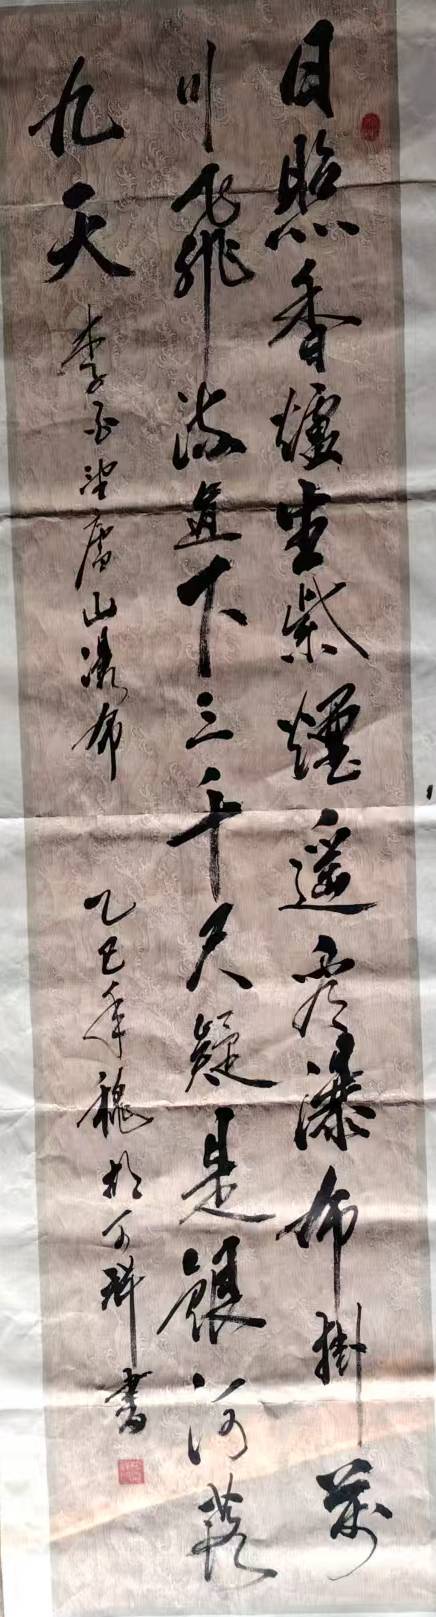 日照香爐生紫煙遥看瀑布掛前
川飛流直下三千尺疑是銀河落
九天
李白望廬山瀑布
乙巳年 書